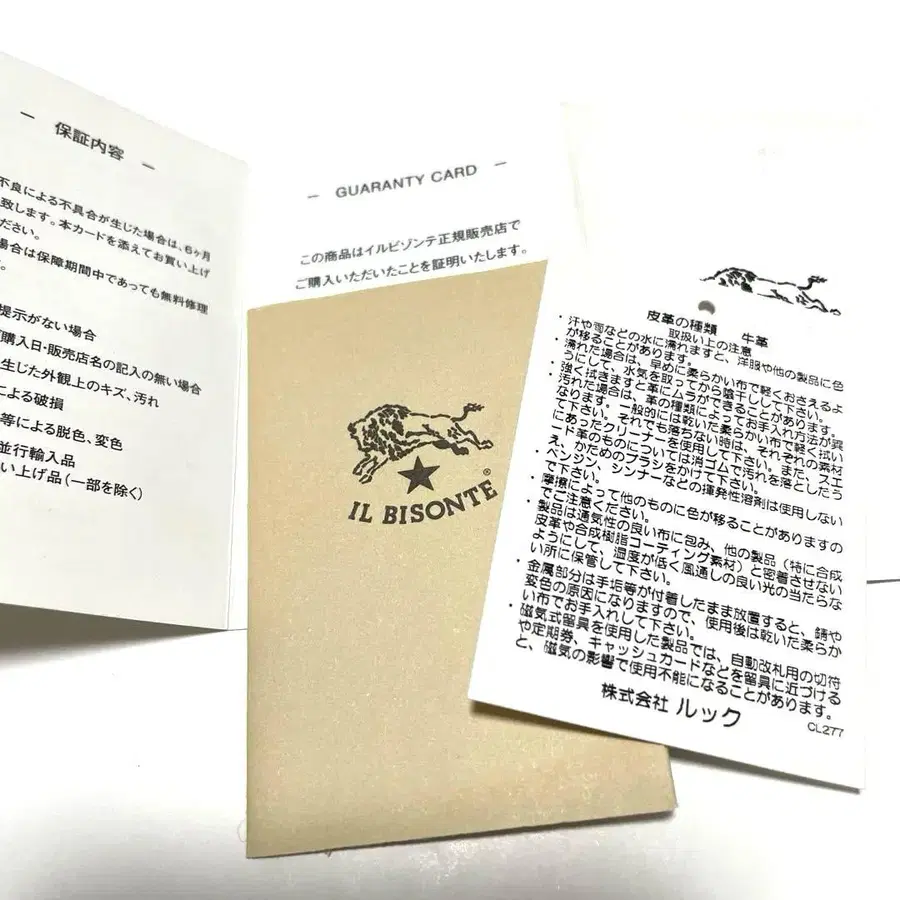 ― 保証内容 ―
不良による不具合が生じた場合は、6ヶ月
致します。本カードを添えてお買い上げ
ださい。
場合は保障期間中であっても無料修理
す。
提示がない場合
購入日・販売店名の記入の無い場合
生じた外観上のキズ、汚れ
による破損
等による脱色、変色
並行輸入品
い上げ品(一部を除く)
― GUARANTY CARD ―
この商品はイルビゾンテ正規販売店で
ご購入いただいたことを証明いたします。
IL BISONTE®
皮革の種類 牛革
取扱い上の注意
・汗や雨などの水に濡れますと、洋服や他の製品に色
が移ることがあります。
濡れた場合は、早めに柔らかい布で軽くおさえるよ
うにして、水気を取ってから陰干しして下さい。
・強く拭きますと革にムラができることがあります。
汚れた場合は、革の種類によってお手入れ方法が異
なります。一般的には乾いた柔らかい布で軽く拭い
て下さい。それでも落ちない時は、それぞれの素材
にあったクリーナーを使用して下さい。また、スエ
ード革のものについては消ゴムで汚れを落としたう
え、かためのブラシをかけて下さい。
・ベンジン、シンナーなどの揮発性溶剤は使用しない
で下さい。
・摩擦によって他のものに色が移ることがありますの
でご注意ください。
・製品は通気性の良い布に包み、他の製品(特に合成
皮革や合成樹脂コーティング素材)と密着させない
ようにして、湿度が低く風通しの良い光の当たらな
い所に保管して下さい。
・金属部分は手垢等が付着したまま放置すると、錆や
変色の原因になりますので、使用後は乾いた柔らか
い布でお手入れして下さい。
・磁気式留具を使用した製品では、自動改札用の切符
や定期券、キャッシュカードなどを留具に近づける
と、磁気の影響で使用不能になることがあります。
株式会社 ルック
CL277